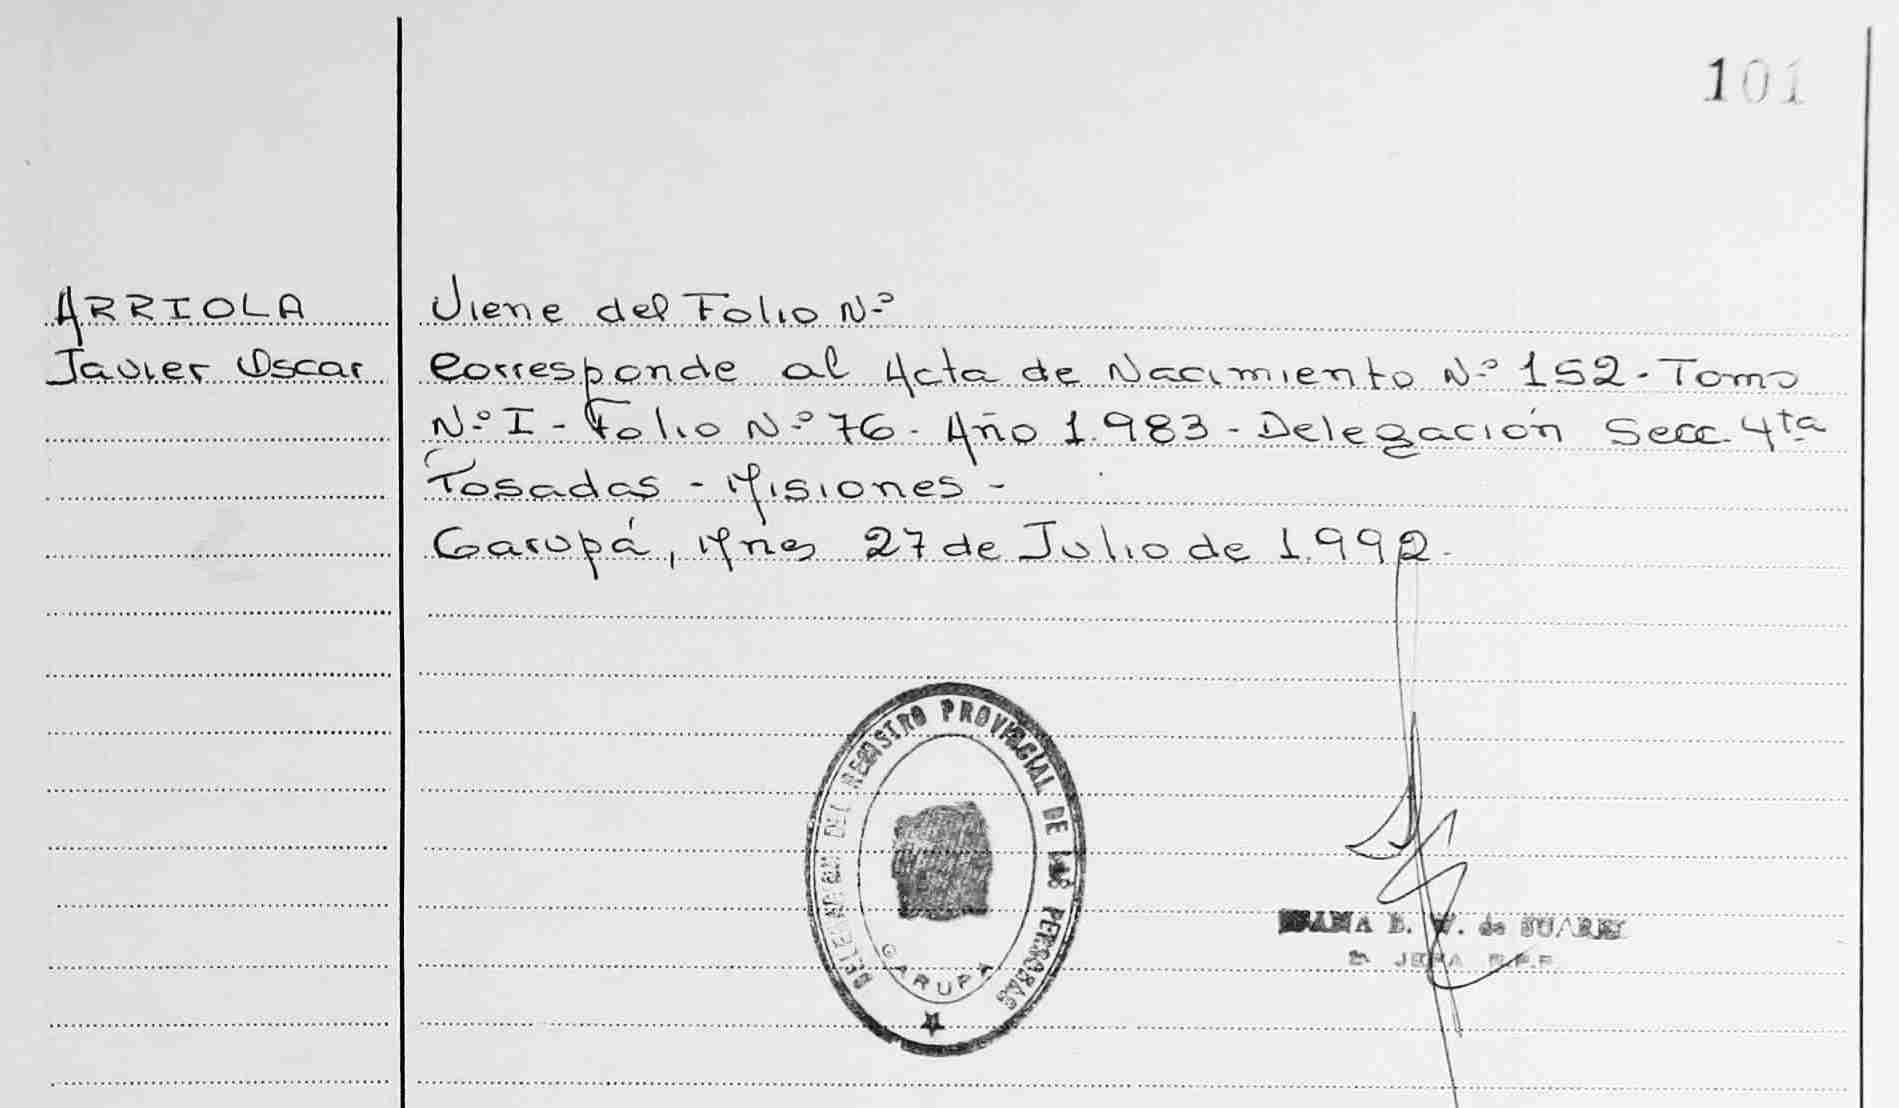 101
ARRIOLA
Javier Oscar
Viene del Folio N.º
Corresponde al Acta de Nacimiento N.º 152 - Tomo
N.º I - Folio N.º 76 - Año 1.983 - Delegación Secc. 4ta
Posadas - Misiones -
Garupá, Mnes 27 de Julio de 1.992.
DELEGACION DEL REGISTRO PROVINCIAL DE LAS PERSONAS
GARUPA
E. de SUAREZ
JEFA